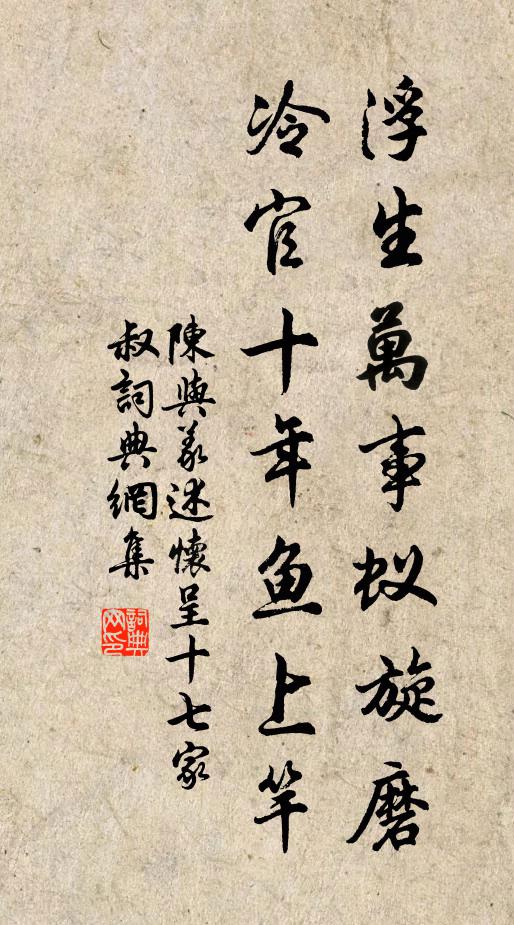 浮生萬事蚁旋磨
冷官十年鱼上竿
陳與義述懷呈十七家
叔詞典網集
詞典网印